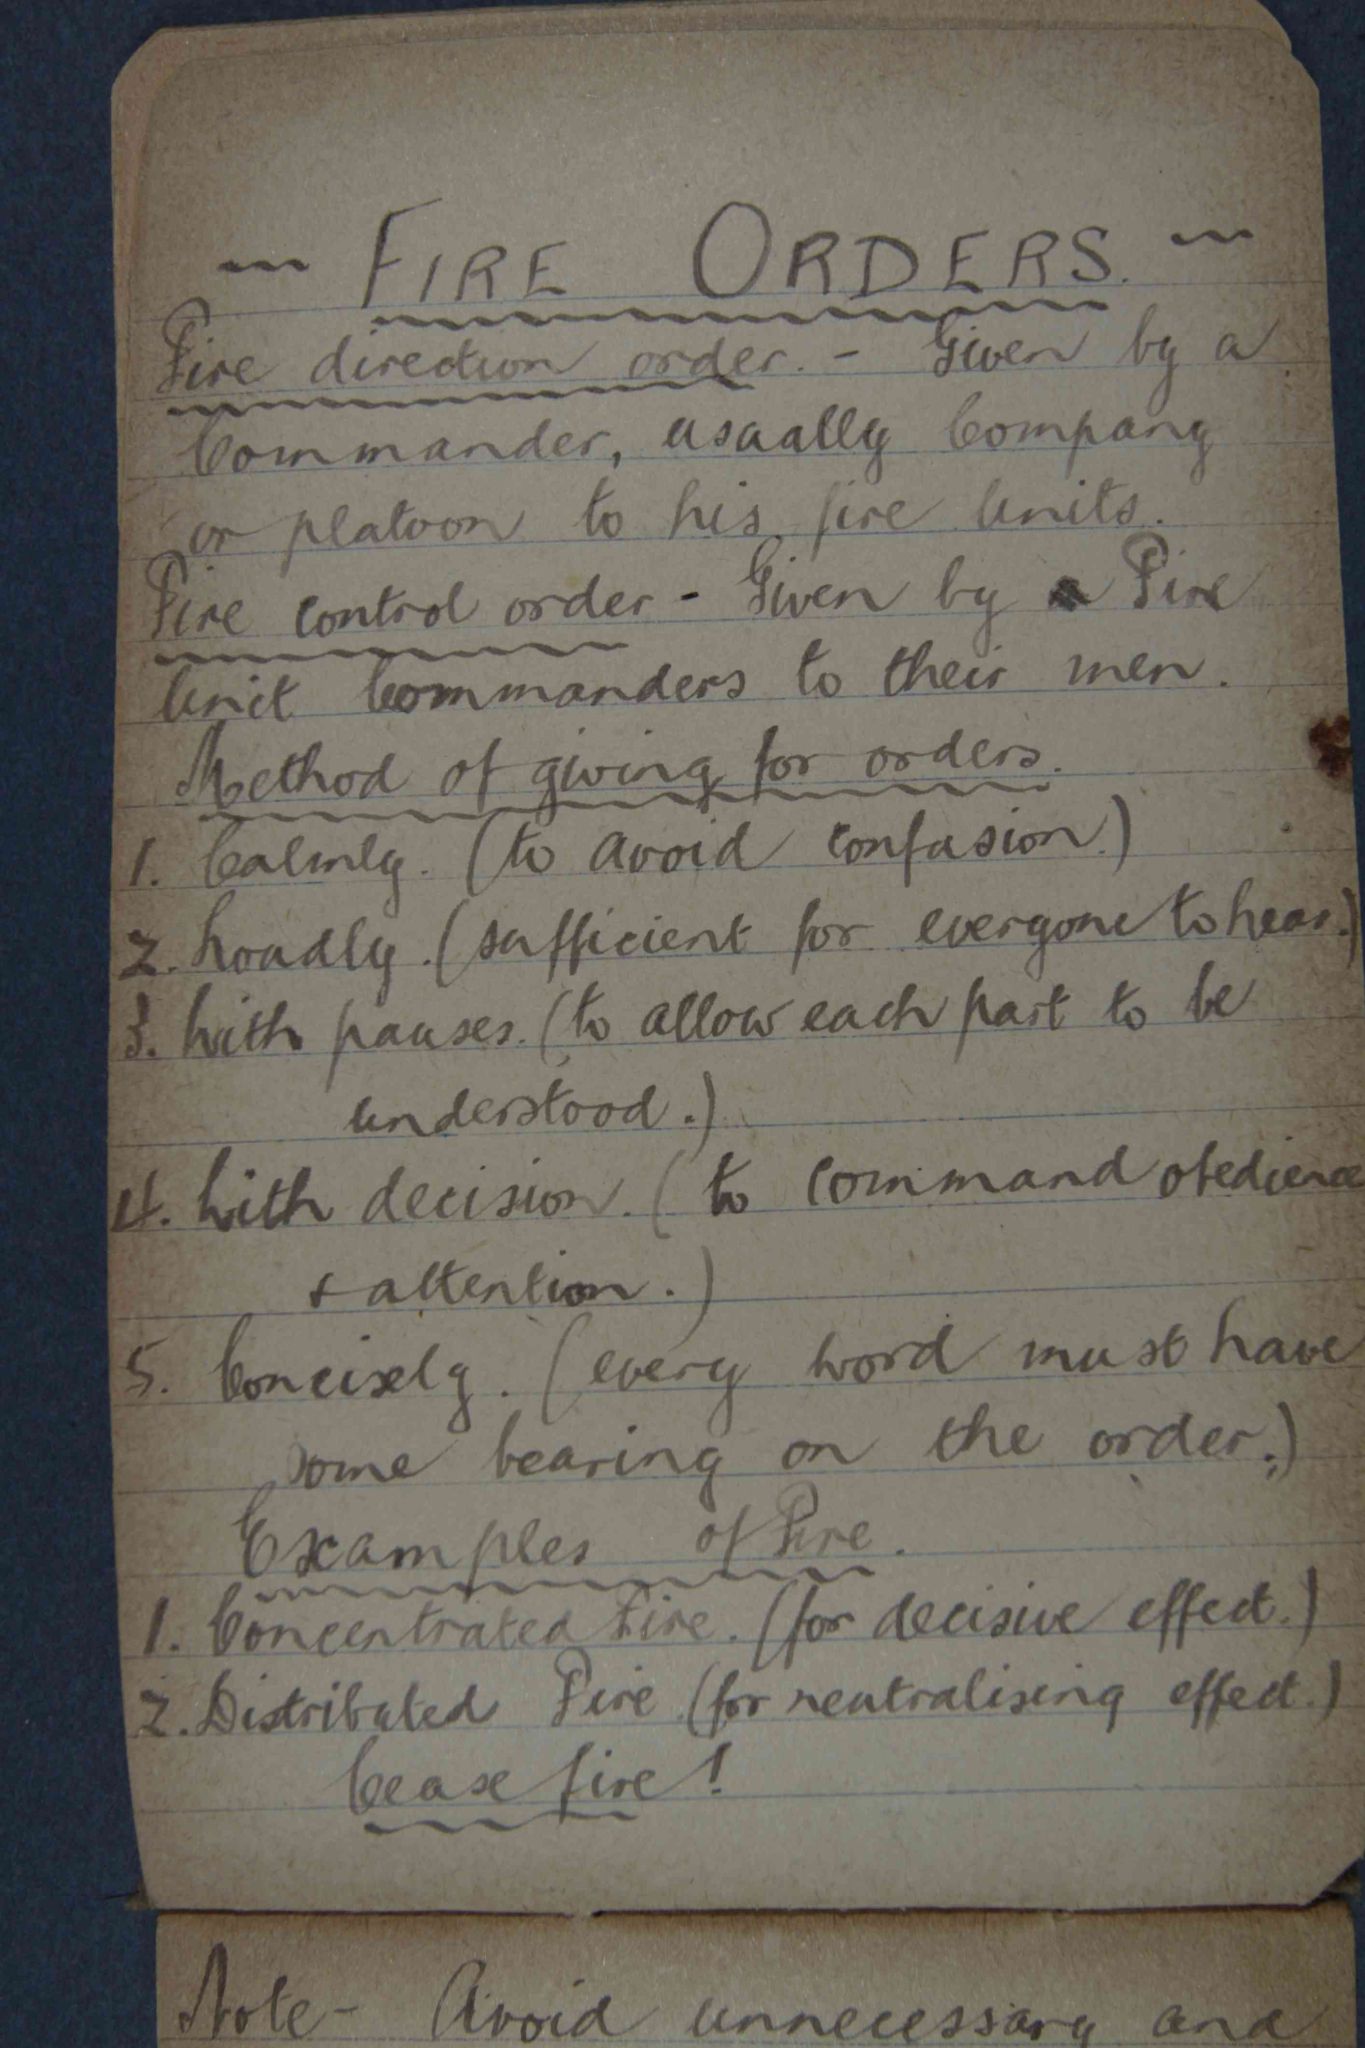 ~ FIRE ORDERS. ~
Fire direction order. - Given by a
Commander, usually Company
or platoon to his fire units.
Fire control order - Given by a Fire
Unit Commanders to their men.
Method of giving for orders.
1. Calmly. (to avoid confusion.)
2. Loudly. (sufficient for everyone to hear.)
3. With pauses. (to allow each part to be
understood.)
4. With decision. (to command obedience
& attention.)
5. Concisely. (every word must have
some bearing on the order.)
Examples of Fire.
1. Concentrated Fire. (for decisive effect.)
2. Distributed Fire (for neutralising effect.)
Cease fire!
Note - Avoid unnecessary and